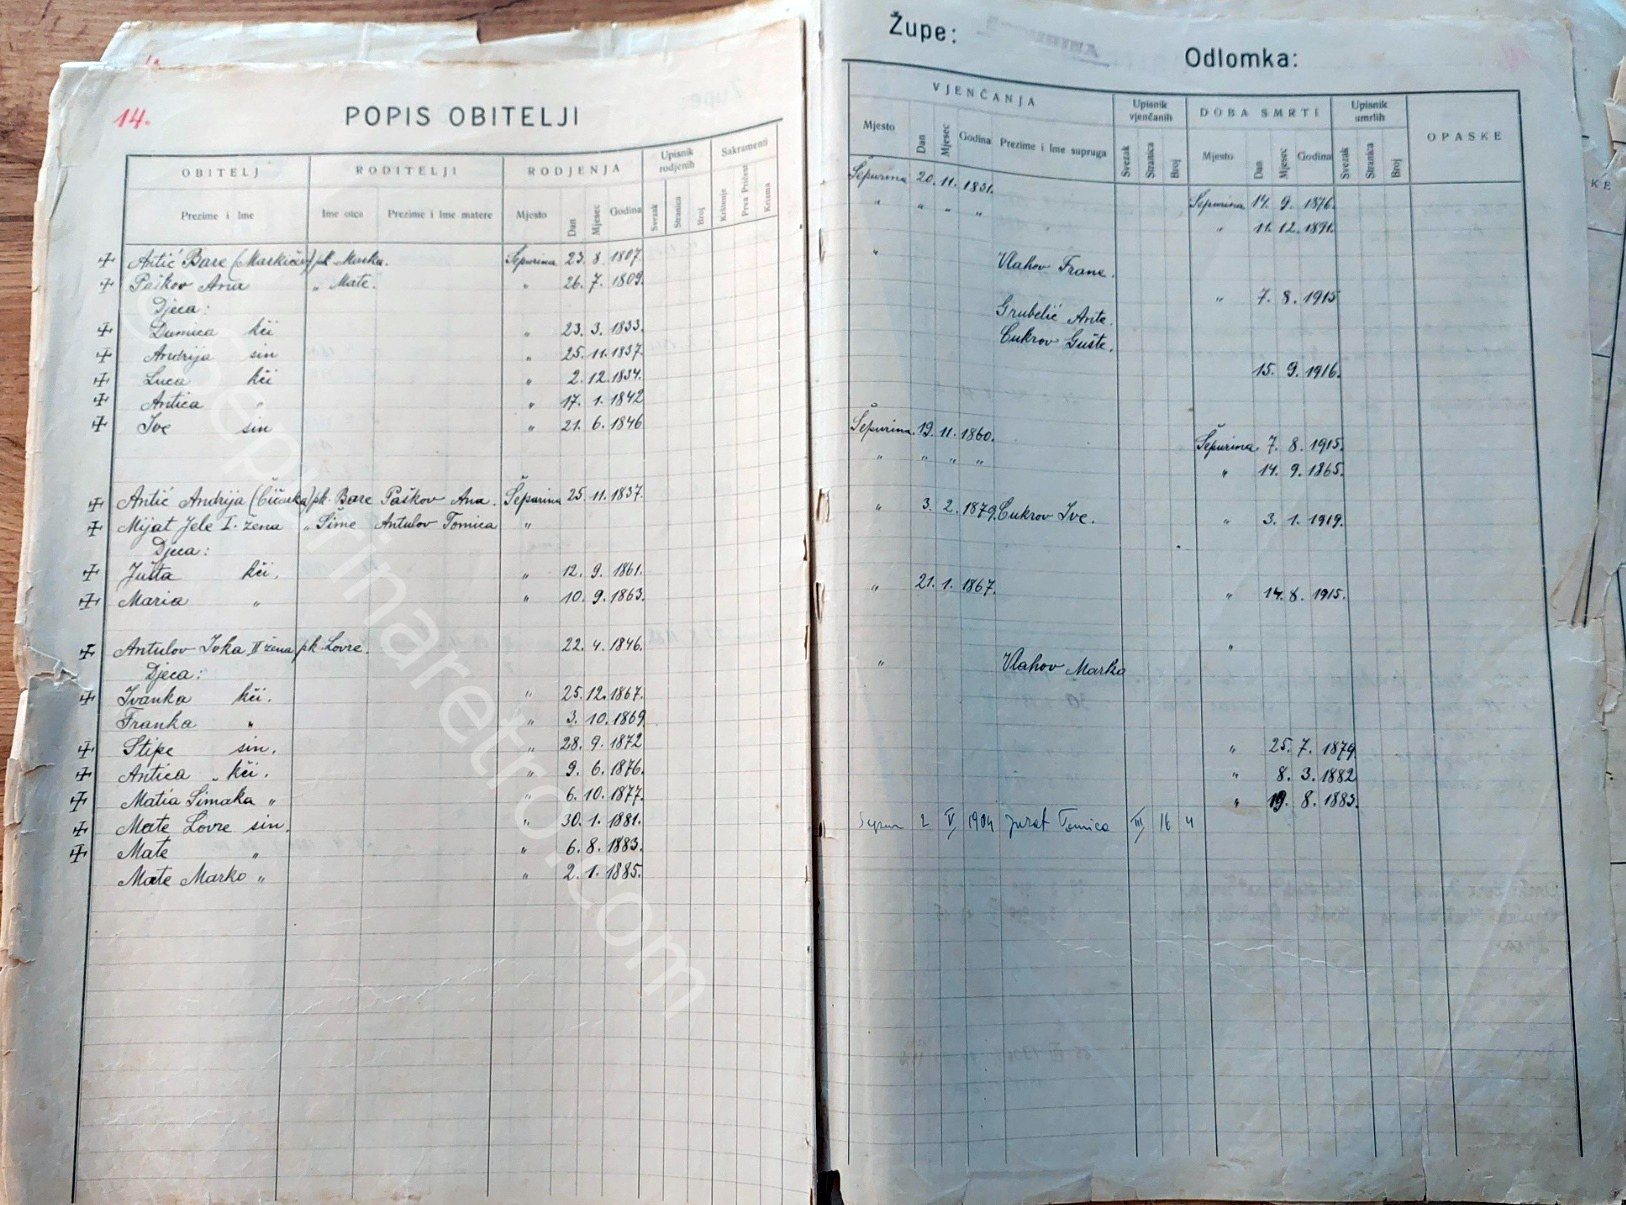 14.
POPIS OBITELJI
OBITELJ RODITELJI RODJENJA Upisnik rodjenih Sakramenti
Prezime i Ime Ime otca Prezime i Ime matere Mjesto Dan Mjesec Godina Svezak Stranica Broj Krštenje Prva Pričest Krizma
Antić Bare (Maškičin) pk Marka. Šepurina 23. 8. 1807.
Paškov Ana " Mate. " 26. 7. 1809.
Djeca:
Dumica kći " 23. 3. 1833.
Andrija sin " 25. 11. 1837.
Luca kći " 2. 12. 1834.
Antica " " 17. 1. 1842
Ive sin " 21. 6. 1846
Antić Andrija (Čičinka) pk. Bare Paškov Ana. Šepurina 25. 11. 1837.
Mijat Jele I. žena " Šime Antulov Tomica "
Djeca:
Jušta kći. " 12. 9. 1861.
Maria " " 10. 9. 1863.
Antulov Ivka II žena pk Lovre. 22. 4. 1846.
Djeca:
Ivanka kći. " 25. 12. 1867.
Franka " " 3. 10. 1869
Stipe sin. " 28. 9. 1872
Antica kći. " 9. 6. 1876.
Matia Simaka " " 6. 10. 1877.
Mate Lovre sin. " 30. 1. 1881.
Mate " " 6. 8. 1883.
Mate Marko " " 2. 1. 1885.
Župe:
Odlomka:
VJENČANJA Upisnik vjenčanih DOBA SMRTI Upisnik umrlih OPASKE
Mjesto Dan Mjesec Godina Prezime i Ime supruga Svezak Stranica Broj Mjesto Dan Mjesec Godina Svezak Stranica Broj
Šepurina 20. 11. 1831. Šepurina 14. 9. 1876.
" " " " " 11. 12. 1891.
" Vlahov Frane.
" 7. 8. 1915
Grubelić Ante.
Cukrov Gušte.
15. 9. 1916.
Šepurina. 19. 11. 1860. Šepurina 7. 8. 1915.
" " " " " 14. 9. 1865.
" 3. 2. 1879. Cukrov Ive. " 3. 1. 1919.
" 21. 1. 1867. " 14. 8. 1915.
"
" Vlahov Marka
" 25. 7. 1879
" 8. 3. 1882
" 19. 8. 1883.
2 V 1904 Jurat Tomica III 16 4
sepurinaretro.com